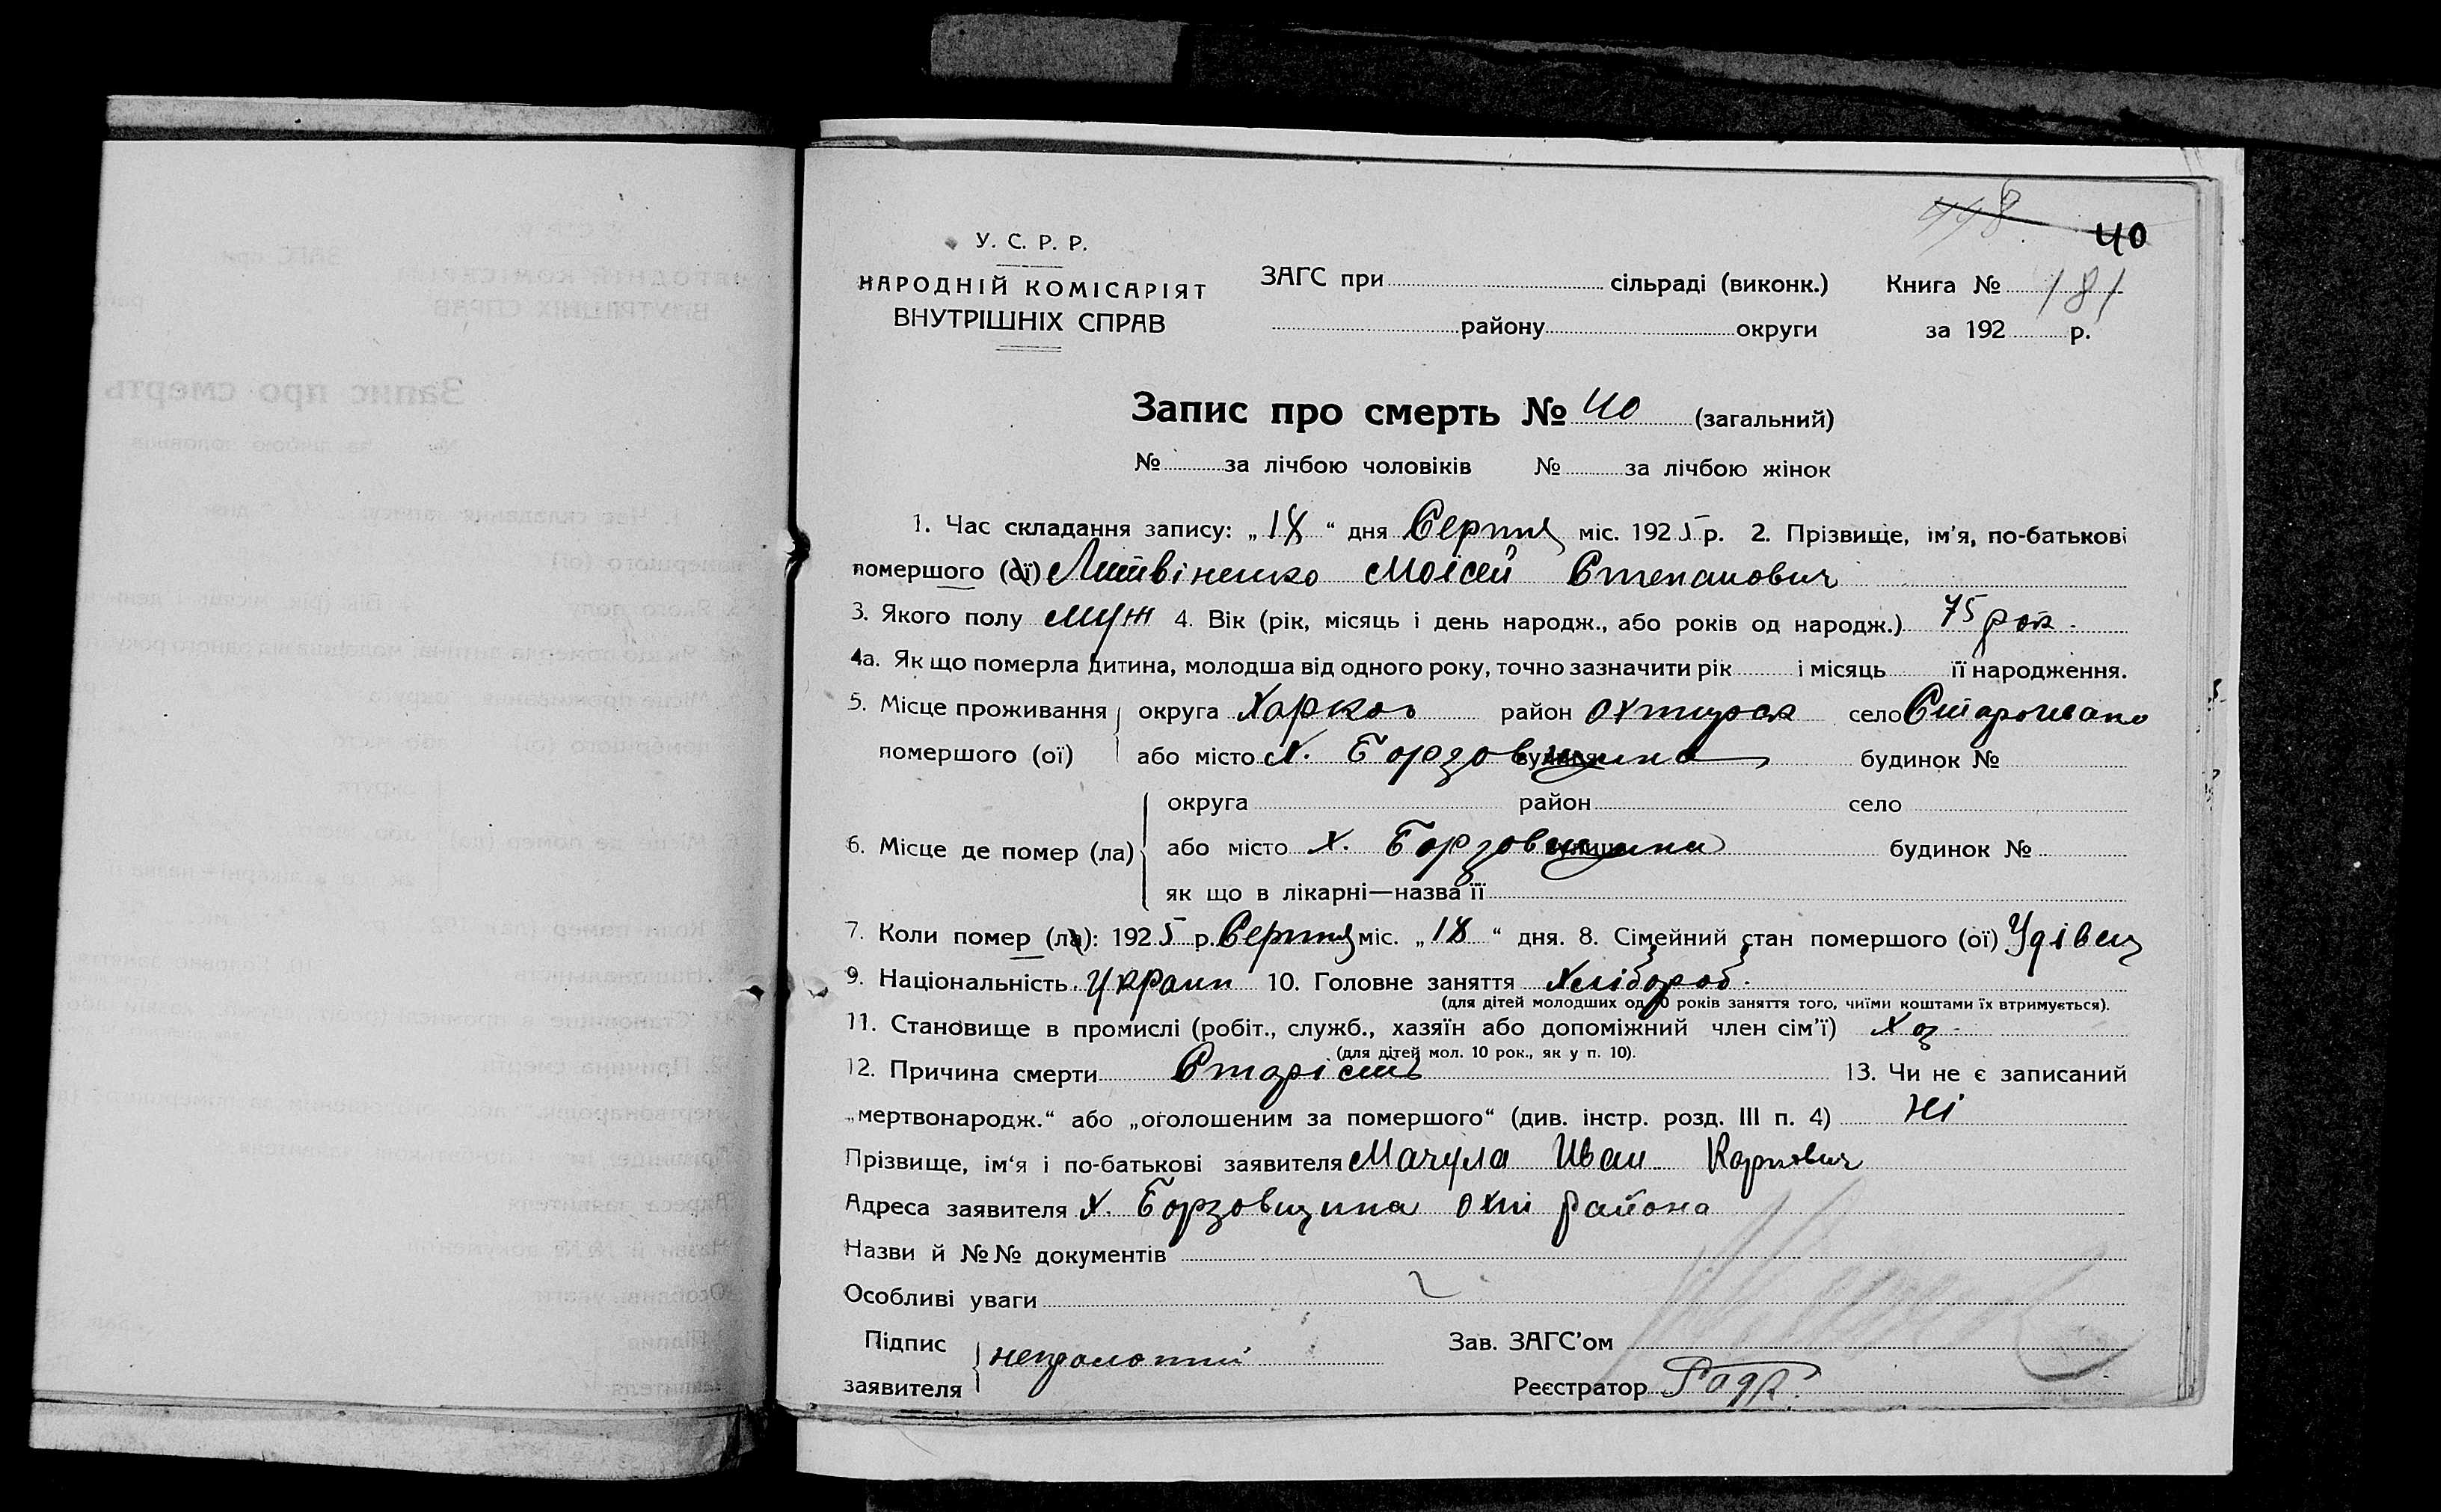 40
У. С. Р. Р.
НАРОДНІЙ КОМІСАРІЯТ
ВНУТРІШНІХ СПРАВ
ЗАГС при сільраді (виконк.)
району округи
Книга № 181
за 192 р.
Запис про смерть № 40 (загальний)
№ за лічбою чоловіків № за лічбою жінок
1. Час складання запису: „18“ дня Серпня міс. 1925 р. 2. Прізвище, ім'я, по-батькові
помершого (ої) Литвіненко Моісей Степанович
3. Якого полу муж 4. Вік (рік, місяць і день народж., або років од народж.) 75 рок.
4а. Як що померла дитина, молодша від одного року, точно зазначити рік і місяць її народження.
5. Місце проживання помершого (ої) округа Харков район Охтирск село Староивано
або місто х. Борзовщина вулиця будинок №
6. Місце де помер (ла) округа район село
або місто х. Борзовщина вулиця будинок №
як що в лікарні—назва її
7. Коли помер (ла): 1925 р. Серпня міс. „18“ дня. 8. Сімейний стан помершого (ої) Удівец
9. Національність Украин 10. Головне заняття Хлібороб.
(для дітей молодших од 10 років заняття того, чиїми коштами їх втримується).
11. Становище в промислі (робіт., служб., хазяїн або допоміжний член сім'ї) Хаз
(для дітей мол. 10 рок., як у п. 10).
12. Причина смерти Старість 13. Чи не є записаний
„мертвонародж.“ або „оголошеним за помершого“ (див. інстр. розд. III п. 4) Ні
Прізвище, ім'я і по-батькові заявителя Мачула Иван Карпович
Адреса заявителя х. Борзовщина Охт района
Назви й №№ документів
Особливі уваги
Підпис заявителя неграмотний
Зав. ЗАГС'ом
Реєстратор